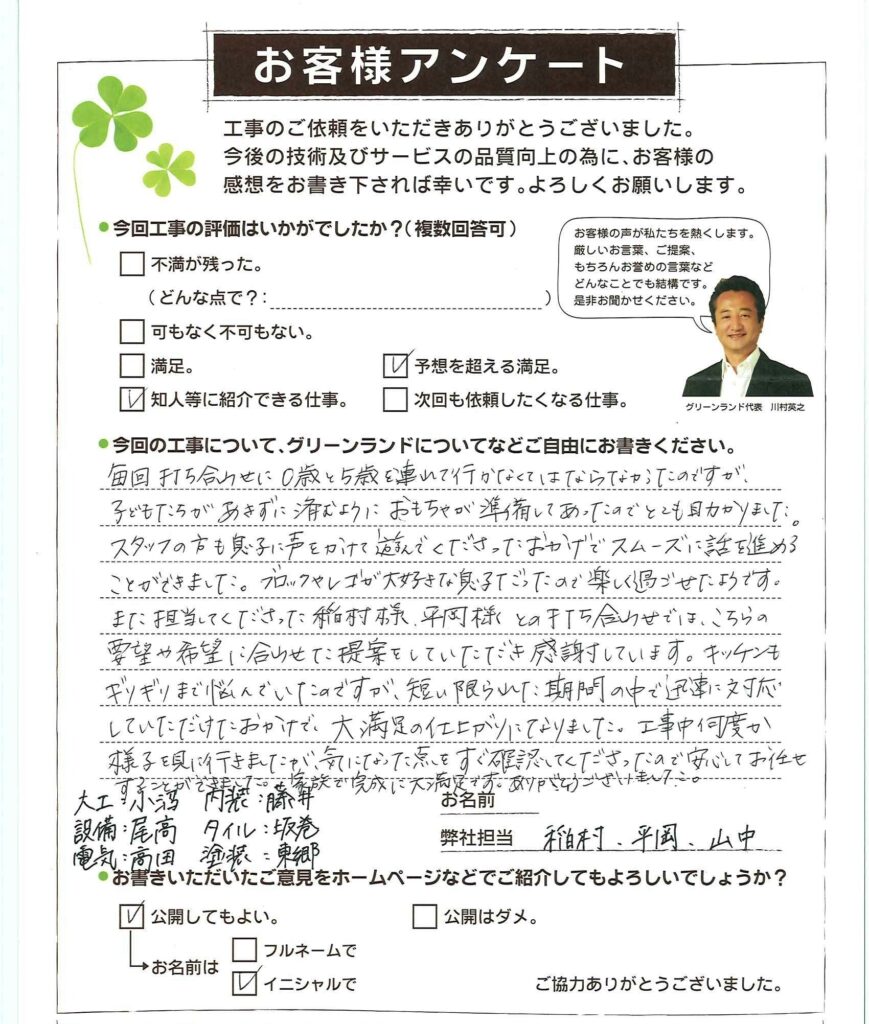 お客様アンケート
工事のご依頼をいただきありがとうございました。
今後の技術及びサービスの品質向上の為に、お客様の
感想をお書き下されば幸いです。よろしくお願いします。
今回工事の評価はいかがでしたか？（複数回答可）
不満が残った。
（どんな点で？：　　　）
可もなく不可もない。
満足。
予想を超える満足。
知人等に紹介できる仕事。
次回も依頼したくなる仕事。
お客様の声が私たちを熱くします。
厳しいお言葉、ご提案、
もちろんお誉めの言葉など
どんなことでも結構です。
是非お聞かせください。
グリーンランド代表　川村英之
今回の工事について、グリーンランドについてなどご自由にお書きください。
毎回打ち合わせに0歳と5歳を連れて行かなくてはならなかったのですが、
子どもたちがあきずに済むようにおもちゃが準備してあったのでとても助かりました。
スタッフの方も息子に声をかけて遊んでくださったおかげでスムーズに話を進める
ことができました。ブロックやレゴが大好きな息子だったので楽しく過ごせたようです。
また担当してくださった稲村様、平岡様との打ち合わせでは、こちらの
要望や希望に合わせた提案をしていただき感謝しています。キッチンも
ギリギリまで悩んでいたのですが、短い限られた期間の中で迅速に対応
していただけたおかげで、大満足の仕上がりになりました。工事中何度か
様子を見に行きましたが、気になった点をすぐ確認してくださったので安心してお任せ
することができました。家族で完成に大満足です。ありがとうございました。
大工：小沼　内装：藤井
設備：尾高　タイル：坂巻
電気：高田　塗装：東郷
お名前
弊社担当　稲村、平岡、山中
お書きいただいたご意見をホームページなどでご紹介してもよろしいでしょうか？
公開してもよい。
公開はダメ。
お名前は
フルネームで
イニシャルで
ご協力ありがとうございました。